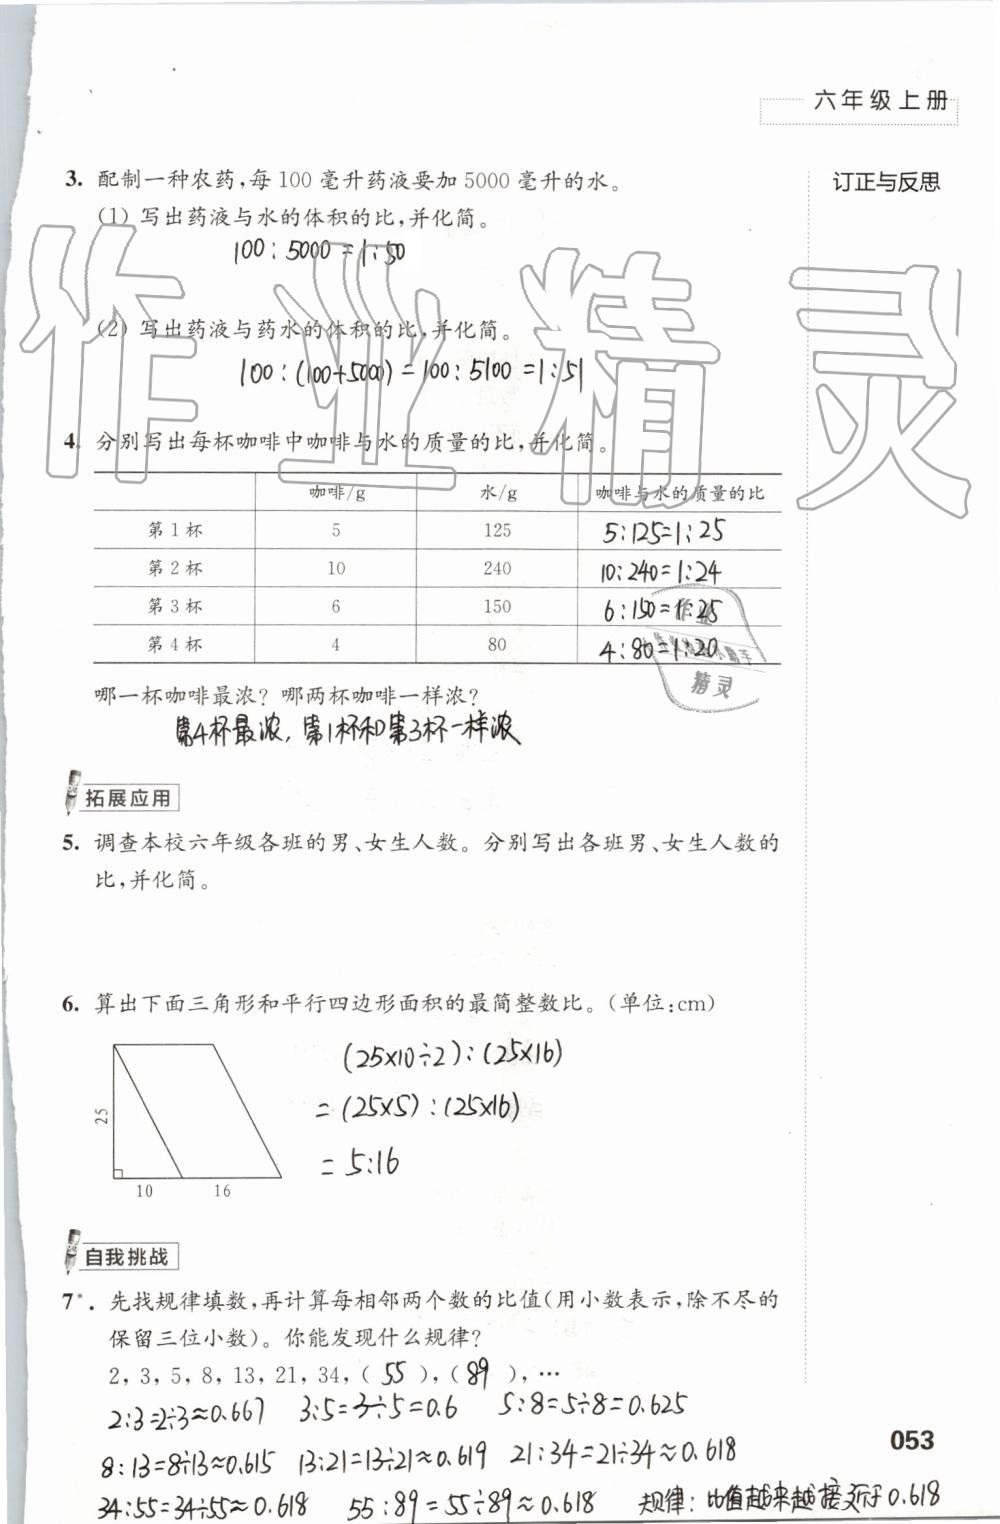 六年级上册
订正与反思
3. 配制一种农药,每 100 毫升药液要加 5000 毫升的水。
(1) 写出药液与水的体积的比,并化简。
100:5000=1:50
(2) 写出药液与药水的体积的比,并化简。
100:(100+5000)=100:5100=1:51
作业精灵
4. 分别写出每杯咖啡中咖啡与水的质量的比,并化简。
咖啡/g 水/g 咖啡与水的质量的比
第 1 杯 5 125 5:125=1:25
第 2 杯 10 240 10:240=1:24
第 3 杯 6 150 6:150=1:25
第 4 杯 4 80 4:80=1:20
作业
精灵
哪一杯咖啡最浓? 哪两杯咖啡一样浓?
第4杯最浓,第1杯和第3杯一样浓
拓展应用
5. 调查本校六年级各班的男、女生人数。分别写出各班男、女生人数的
比,并化简。
6. 算出下面三角形和平行四边形面积的最简整数比。(单位:cm)
25
10 16
(25×10÷2):(25×16)
=(25×5):(25×16)
=5:16
自我挑战
7*. 先找规律填数,再计算每相邻两个数的比值(用小数表示,除不尽的
保留三位小数)。你能发现什么规律?
2, 3, 5, 8, 13, 21, 34, ( 55 ), ( 89 ), …
2:3=2÷3≈0.667 3:5=3÷5=0.6 5:8=5÷8=0.625
8:13=8÷13≈0.615 13:21=13÷21≈0.619 21:34=21÷34≈0.618
34:55=34÷55≈0.618 55:89=55÷89≈0.618 规律:比值越来越接近于0.618
053